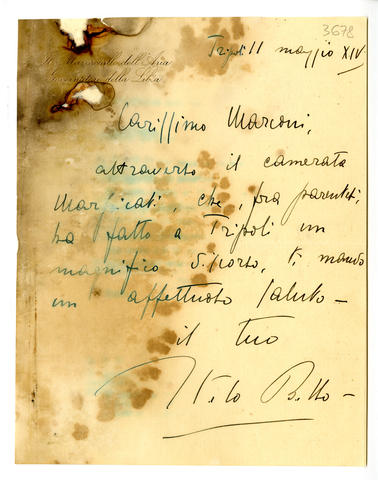 3678
Il Maresciallo dell'Aria
Governatore della Libia
Tripoli 11 maggio XIV
Carissimo Marconi,
attraverso il camerata
Marpicati, che, fra parentesi,
ha fatto a Tripoli un
magnifico discorso, ti mando
un affettuoso saluto -
il tuo
Italo Balbo -